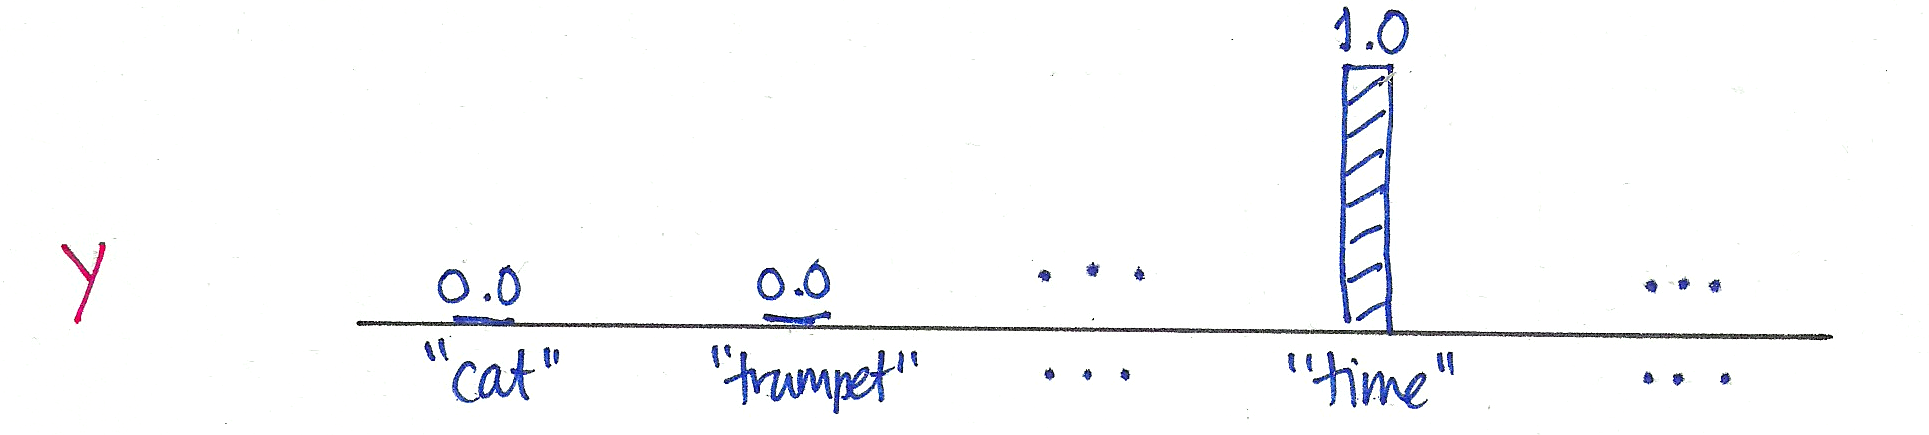 1.0
Y 0.0 0.0 ... ...
"cat" "trumpet" ... "time" ...